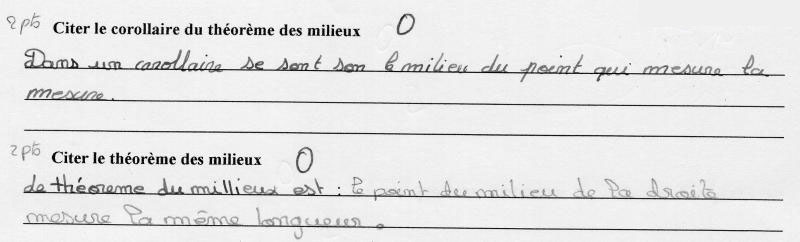 2 pts Citer le corollaire du théorème des milieux 0
Dans un corollaire se sont son le milieu du point qui mesure la
mesure.
2 pts Citer le théorème des milieux 0
de théoreme du millieux est : le point du milieu de la droite
mesure la même longueur.